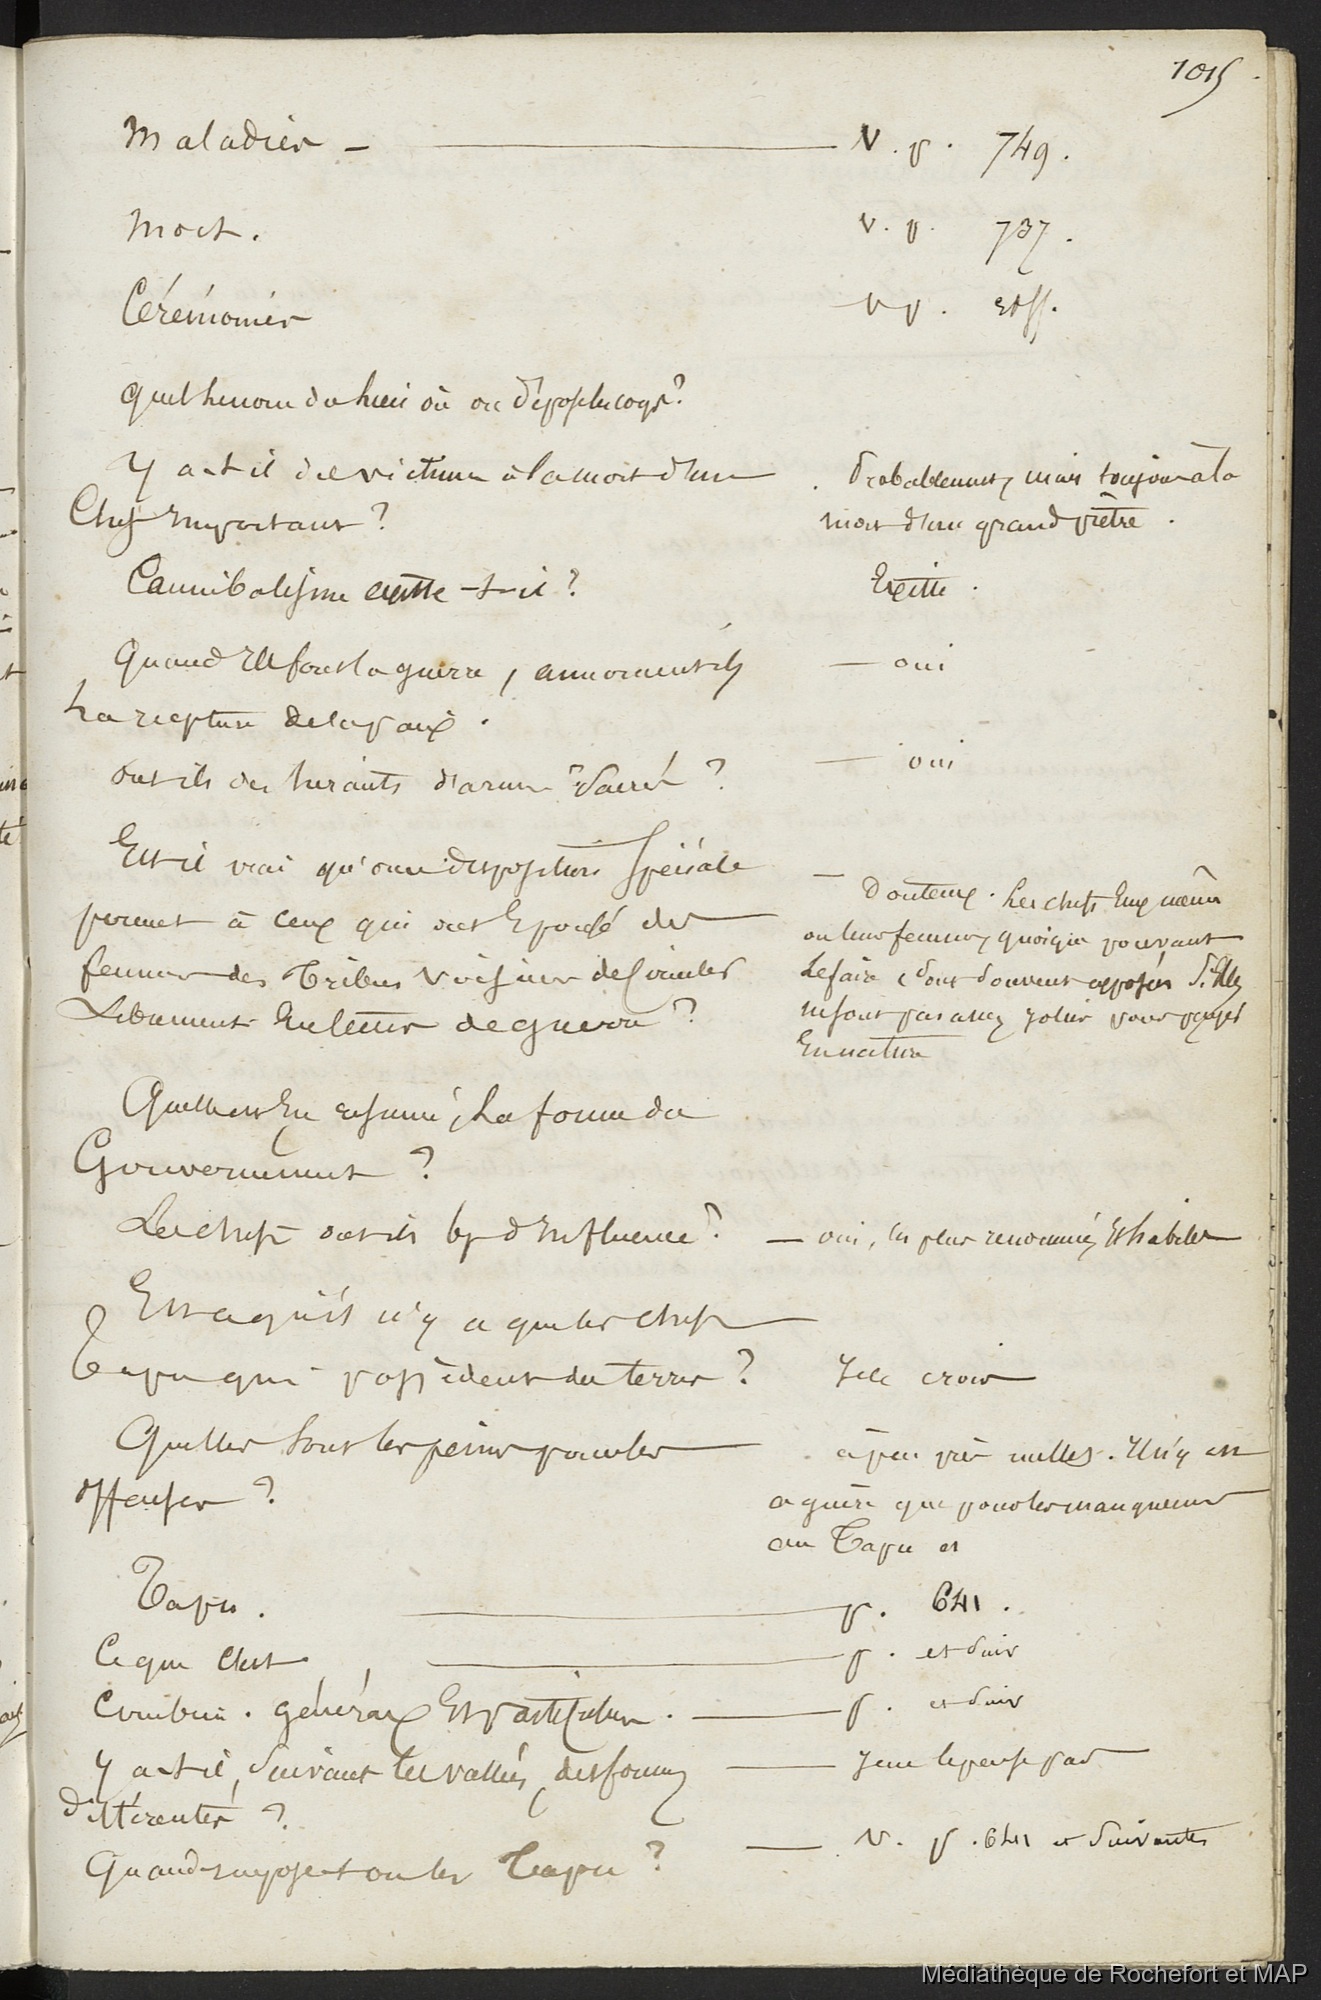 1015
Maladies — V. p. 749.
Mort. V. p. 737.
Cérémonies V p. et ss.
Quel le nom du lieu où on dépose les corps?
Y a-t-il des victimes à la mort d'un Probablement, mais toujours à la
Chef important? mort d'un grand prêtre.
Cannibalisme existe-t-il? Existe.
Quand ils font la guerre, annoncent-ils — oui
La rupture de la paix.
Ont-ils des hérauts d'armes sacrés? — oui
Est-il vrai qu'une disposition spéciale — Douteux. Les chefs eux mêmes
permet à ceux qui ont épousé des ou leurs femmes, quoique pouvant
femmes des Tribus voisines de circuler Le faire, sont souvent apposés s'elles
Librement en temps de guerre? ne sont pas assez jolies pour payer
En nature
Quelle est en résumé, La forme du
Gouvernement?
Les chefs ont-ils bp d'influence? — oui, les plus renommés et habiles
Est-ce qu'il n'y a que les chefs
Tapu qui possèdent des terres? Je le crois
Quelles sont les peines pour les à peu près nulles. Il n'y en
offenses? a guère que pour les manquements
au Tapu et
Tapu. — p. 641.
Ce que c'est — p. et suiv
Combien. généraux Et particuliers. — p. et suiv
Y a-t-il, suivant les vallées, des formes — Je ne le pense pas
différentes?
Quand impose-t-on les Tapu? — V. p. 641 et suivantes
Médiathèque de Rochefort et MAP